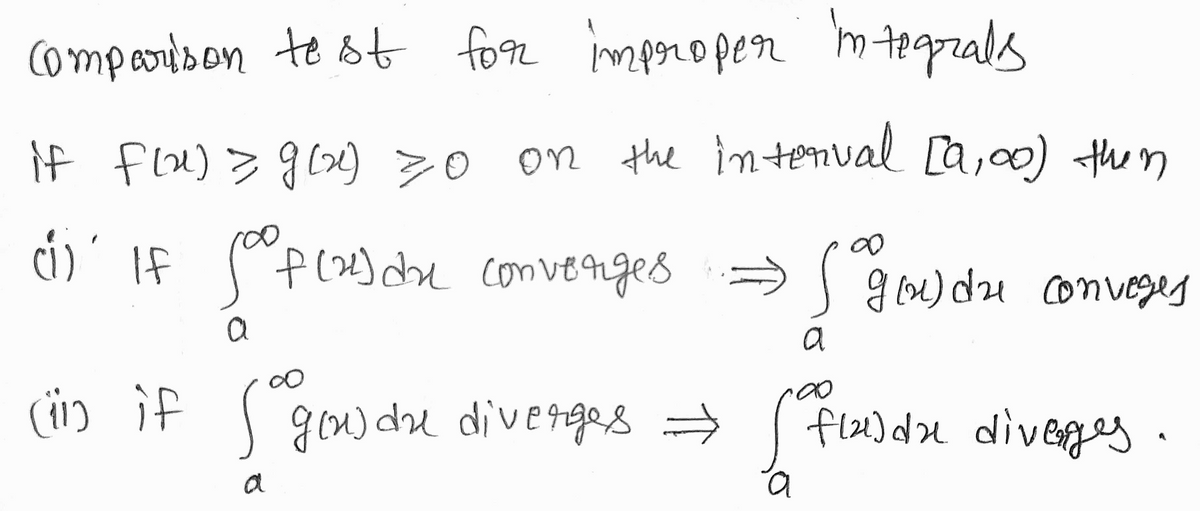 comparison test for improper integrals
if f(x) ≥ g(x) ≥ 0 on the interval [a,∞) then
(i) If ∫_a^∞ f(x) dx converges ⇒ ∫_a^∞ g(x) dx conveges
(ii) if ∫_a^∞ g(x) dx diverges ⇒ ∫_a^∞ f(x) dx diverges.